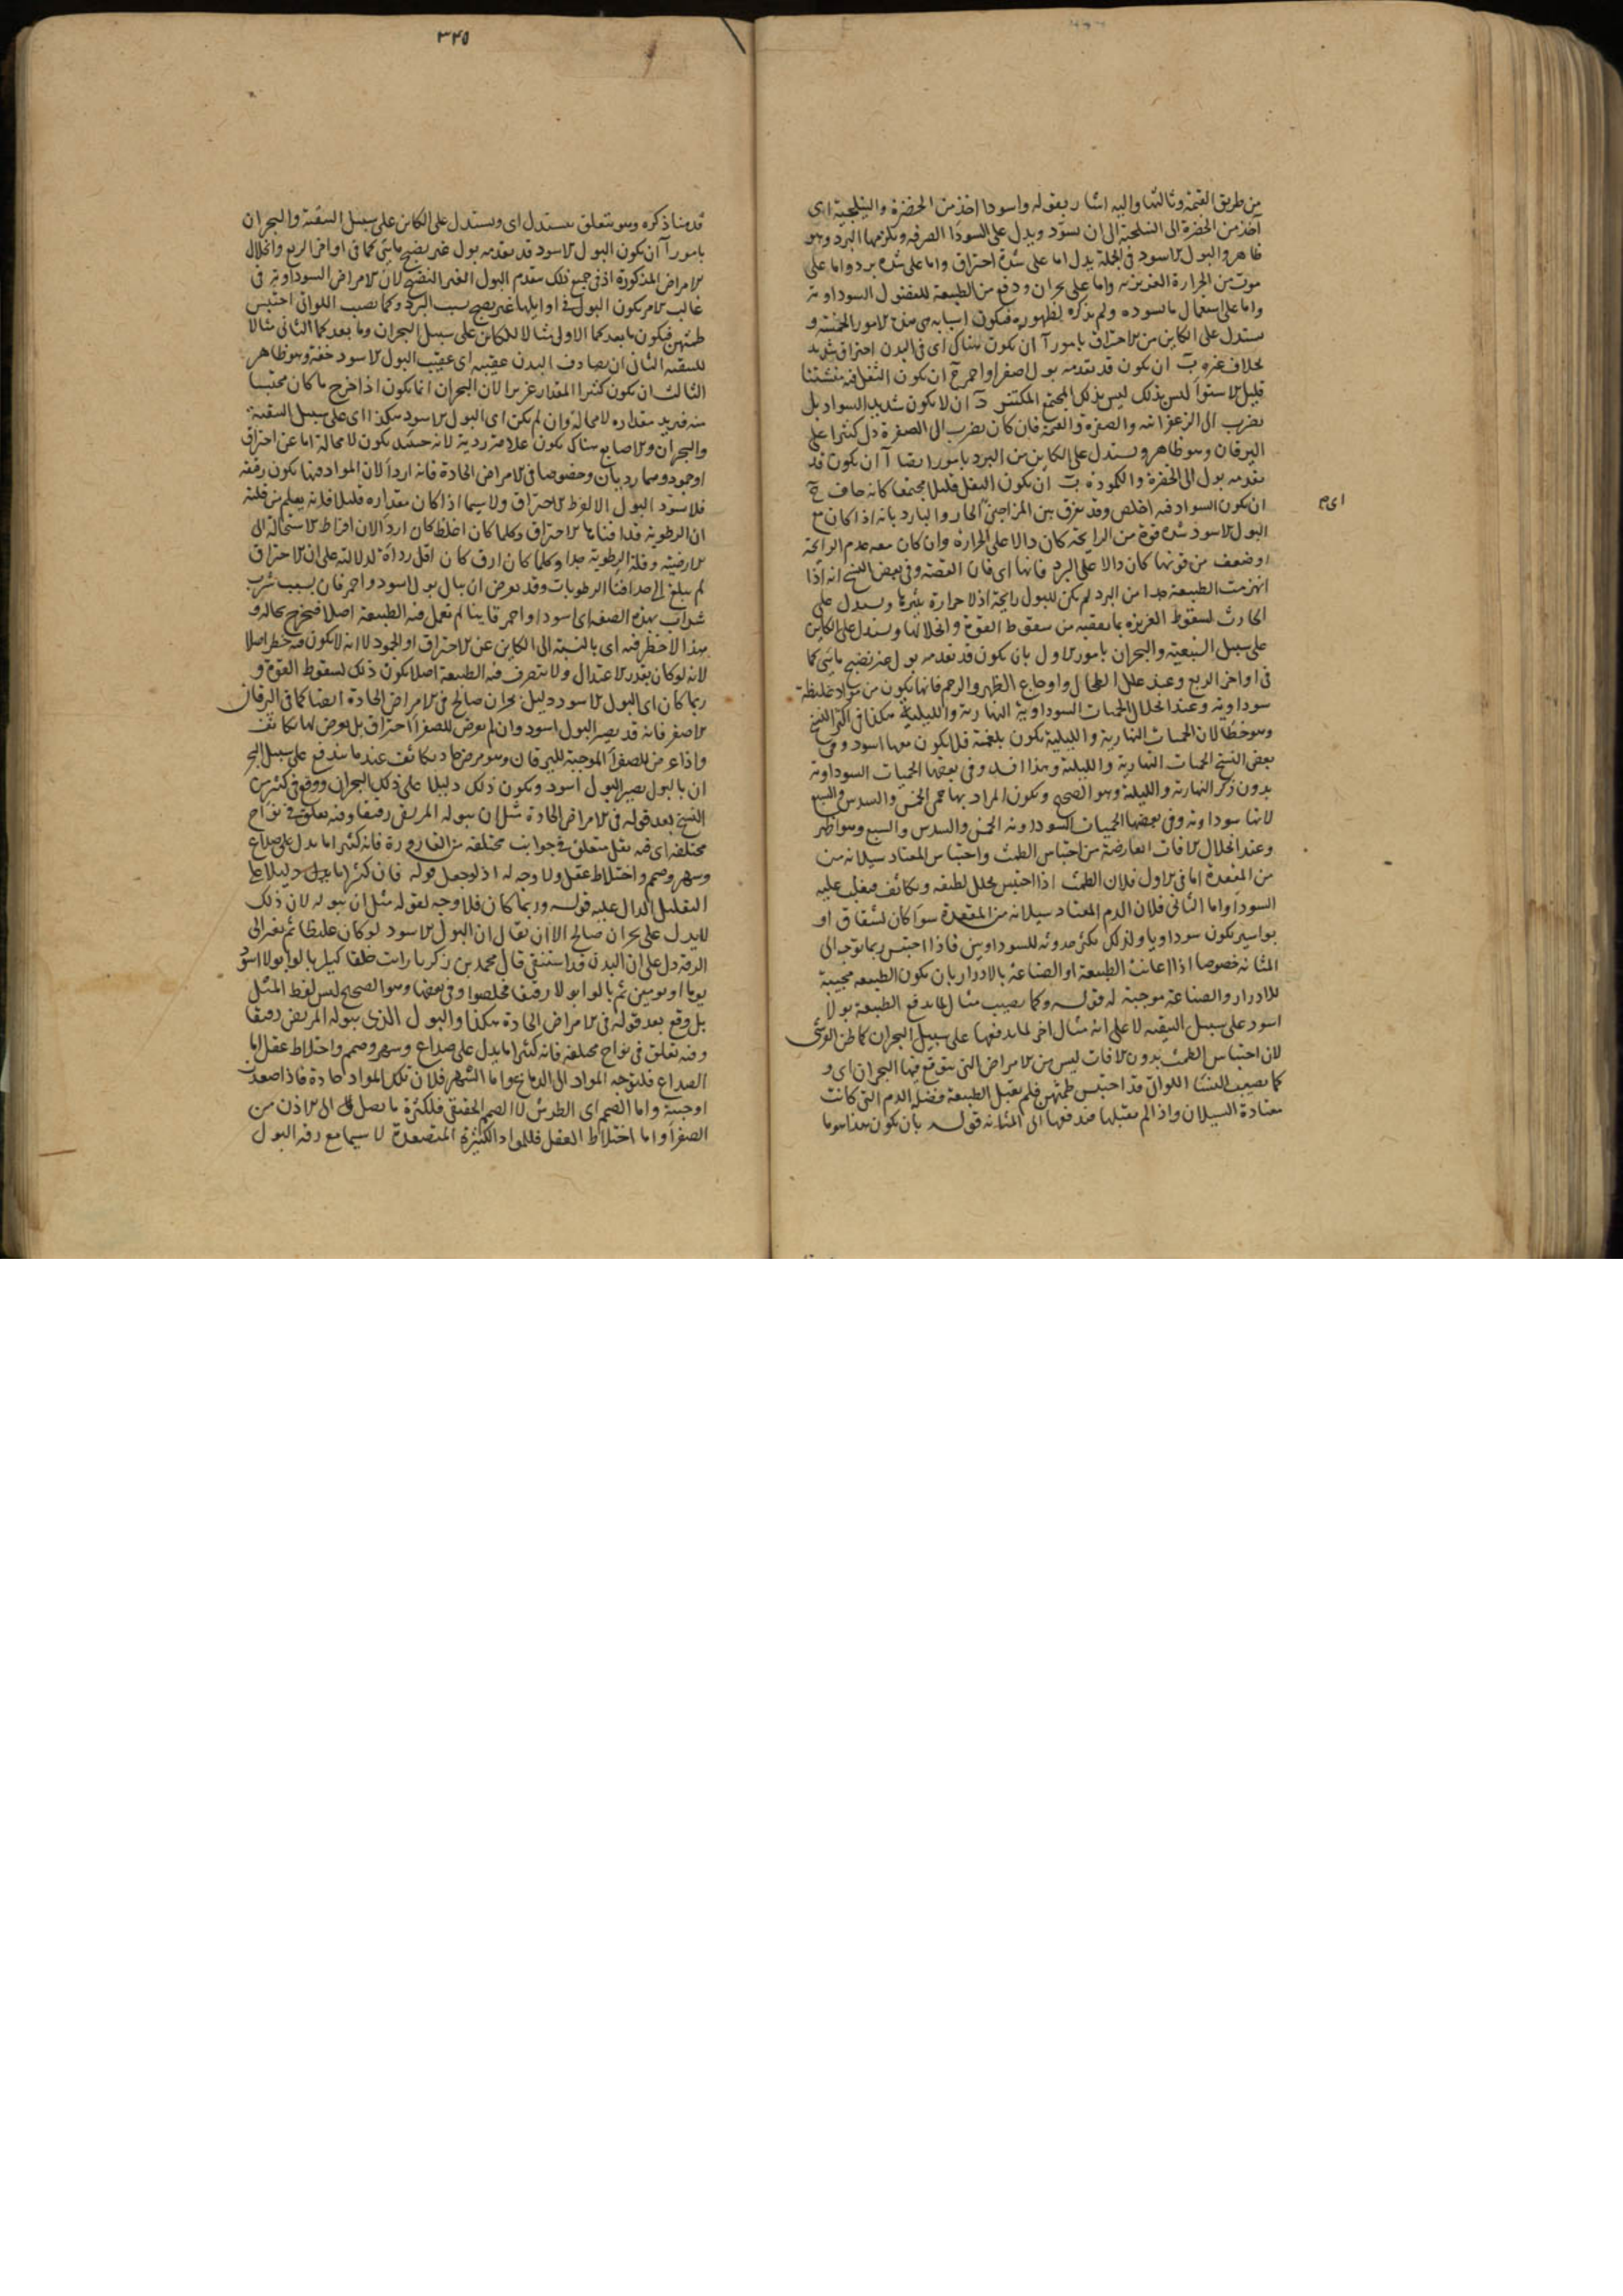 من طريق القتمة وثالثها واليه اشار بقوله واسودا اخذ من الخضرة والنيلنجية اى
آخذ من الخضرة الى النيلنجية الى ان يسود ويدل على السودا الصرفه ويلزمها البرد وهو
ظاهر والبول الاسود فى الجملة يدل اما على شدة احتراق واما على شدة برد واما على
موت من الحرارة الغريزية واما على بحران ودفع من الطبيعة للفضول السوداوية
واما على استعمال ما يسوده ولم يذكره لظهوره فيكون اسبابه هى هذه الامور الخمسة و
يستدل على الكاين من الاحتراق بامور آ ان يكون هناك اى فى البدن احتراق شديد
بخلاف غيره ب ان يكون قد تقدمه بول اصفر او احمر ج ان يكون الثفل فيه متشتتا
قليل الاستوا ليس بذلك ليس بذلك المجتمع المكتنز د ان لا يكون شديد السواد بل
يضرب الى الزعفرانيه والصفرة والقتمة فان كان يضرب الى الصفرة دل كثيرا على
اليرقان وهو ظاهر ويستدل على الكاين من البرد بامور ايضا آ ان يكون قد
تقدمه بول الى الخضرة والكمودة ب ان يكون الثفل قليلا مجتمعا كانه جاف ج
ان يكون السواد فيه اخلص وقد يفرق بين المزاجين الحار والبارد بانه اذا كان مع
البول الاسود شدة قوة من الرايحة كان دالا على الحرارة وان كان معه عدم الرائحة
او ضعف من قوتها كان دالا على البرد فانها اى فان القصة وفى بعض النسخ انه اذا
انهزمت الطبيعة جدا من البرد لم يكن للبول رايحة اذ لا حرارة تثيرها ويستدل على
الحادث لسقوط الغريزة بما يعقبه من سقوط القوة وانحلالها ويستدل على الكاين
على سبيل التنقية والبحران بامور الاول بان يكون قد تقدمه بول غير نضيج مائى كما
فى اواخر الربع وعند علل الطحال واوجاع الظهر والرحم فانها يكون من مواد غليظة
سوداوية وعند انحلال الحميات السوداوية النهارية والليلية هكذا فى اكثر النسخ
وهو خطأ لان الحميات النهارية والليلية يكون بلغمية قل ان يكون معها اسود وفى
بعض النسخ الحميات النهارية والليلية وهذا افسد وفى بعضها الحميات السوداوية
بدون ذكر النهارية والليلية وهو الصحيح ويكون المراد بها حمى الخمس والسدس والسبع
لانها سوداوية وفى بعضها الحميات السوداوية الخمس والسدس والسبع وهو اظهر
وعند انحلال الافات العارضة من احتباس الطمث واحتباس المعتاد سيلانه من
من المقعدة اما فى الاول فلان الطمث اذا احتبس تحلل لطيفه وتكاثف فيغلب عليه
السودا واما الثانى فلان الدم المعتاد سيلانه من المقعدة سوا كان لشقاق او
بواسير يكون سوداويا ولذلك يكثر حدوثه للسوداويين فاذا احتبس ربما توجه الى
المثانة خصوصا اذا اعانت الطبيعة او الصناعة بالادرار بان يكون الطبيعة مجيبة
للادرار والصناعة موجبة له قوله وكما يصيب مثال لما يدفع الطبيعة بولا
اسود على سبيل التنقية لا على انه مثال اخر لما يدفعها على سبيل البحران كما ظن القرشى
لان احتباس الطمث بدون الافات ليس من الامراض التى يتوقع فيها البحران اى و
كما يصيب النسا اللواتى قد احتبس طمثهن فلم يقبل الطبيعة فضلة الدم التى كانت
معتادة السيلان واذا لم تقبلها فتدفعها الى المثانة قوله بان يكون هذا هو ما
اى م
٣٢٥
قدمنا ذكره وهو يتعلق بيستدل اى ويستدل على الكاين على سبيل التنقية والبحران
بامور آ ان يكون البول الاسود قد تقدمه بول غير نضيج مائى كما فى اواخر الربع وانحلال
الامراض المذكورة اذ فى جميع ذلك يتقدم البول الغير النضيج لان الامراض السوداوية فى
غالب الامر يكون البول فى اوايلها غير نضيج بسبب البرد وكما يصيب اللواتى احتبس
طمثهن فيكون ما بعد كما الاولى مثالا للكاين على سبيل البحران وما بعد كما الثانى مثالا
للتنقية الثانى ان يصادف البدن عقيبه اى عقيب البول الاسود خفة وهو ظاهر
الثالث ان يكون كثير المقدار غزيرا لان البحران انما يكون اذا خرج ما كان محتبسا
منه فيزيد مقداره لا محالة وان لم يكن اى البول الاسود هكذا اى على سبيل التنقية
والبحران ولا صابغ هناك يكون علامة ردية لانه حينئذ يكون لا محالة اما عن احتراق
او جمود وهما رديان وخصوصا فى الامراض الحادة فانه اردأ لان المواد فيها يكون رقيقة
فلا يسود البول الا لفرط الاحتراق ولا سيما اذا كان مقداره قليلا فانه يعلم من قلته
ان الرطوبة قد افناها الاحتراق وكلما كان اغلظ كان اردأ لان افراط الاستحالة الى
الارضية وقلة الرطوبة جدا وكلما كان ارق كان اقل رداءة لدلالته على ان الاحتراق
لم يبلغ الى حد افنا الرطوبات وقد يعرض ان يبال بول اسود واحمر فان بسبب شرب
شراب بهذه الصفة اى اسود او احمر قانيا لم تعمل فيه الطبيعة اصلا فيخرج بحاله و
هذا لا خطر فيه اى بالنسبة الى الكاين عن الاحتراق او الجمود لا انه لا يكون فيه خطر اصلا
لانه لو كان بقدر الاعتدال ولا يتصرف فيه الطبيعة اصلا يكون ذلك لسقوط القوة و
ربما كان اى البول الاسود دليل بحران صالح فى الامراض الحادة ايضا كما فى اليرقان
الاصفر فانه قد يصير البول اسود وان لم يعرض للصفرا احتراق بل يعرض لها تكاثف
واذا عرض للصفرا الموجبة لليرقان وهو مرض حاد تكاثف عند ما يندفع على سبيل البحر
ان بالبول يصير البول اسود ويكون ذلك دليلا على ذلك البحران ووقع فى كثير من
النسخ بعد قوله فى الامراض الحادة مثل ان يبوله المريض رقيقا وفيه تعلق فى نواح
مختلفة اى فيه ثفل متعلق فى جوانب مختلفة من القارورة فانه كثيرا ما يدل على صداع
وسهر وصمم واختلاط عقل ولا وجه له اذ لو جعل قوله فان كثيرا ما يدل دليلا على
التقليل الدال عليه قوله وربما كان فلا وجه لقوله مثل ان يبوله لان ذلك
لا يدل على بحران صالح الا ان يقال ان البول الاسود لو كان غليظا ثم تغير الى
الرقة دل على ان البدن قد استنقى قال محمد بن زكريا رايت خلقا كثيرا بالوا بولا اسود
يوما او يومين ثم بالوا بولا رقيقا فخلصوا وفى بعضها وهو الصحيح ليس لفظ المثل
بل وقع بعد قوله فى الامراض الحادة هكذا والبول الذى يبوله المريض رقيقا
وفيه تعلق فى نواح مختلفة فانه كثيرا ما يدل على صداع وسهر وصمم واختلاط عقل اما
الصداع فلتوجه المواد الى الدماغ واما السهر فلان تلك المواد حادة فاذا صعدت
اوجبته واما الصمم اى الطرش لا الصمم الحقيقى فلكثرة ما يصل الى الاذن من
الصفرا واما اختلاط العقل فللمواد الكثيرة المتصعدة لا سيما مع رقة البول